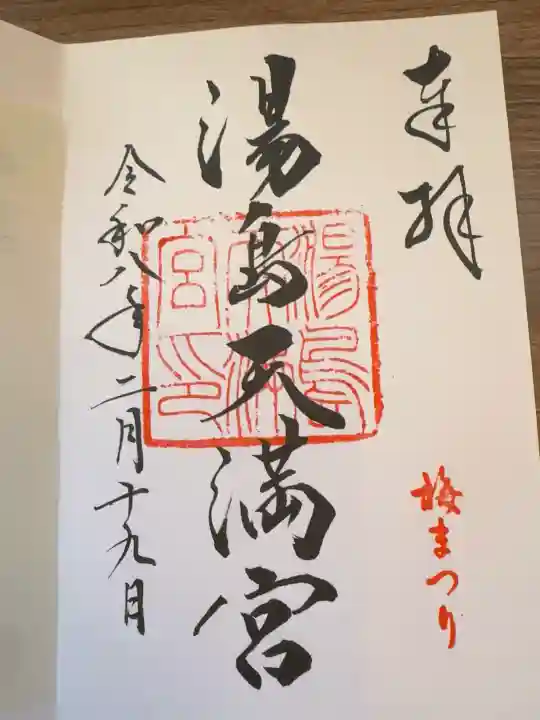 奉拝
梅まつり
湯島天満宮
湯島天満宮印
令和八年二月十九日